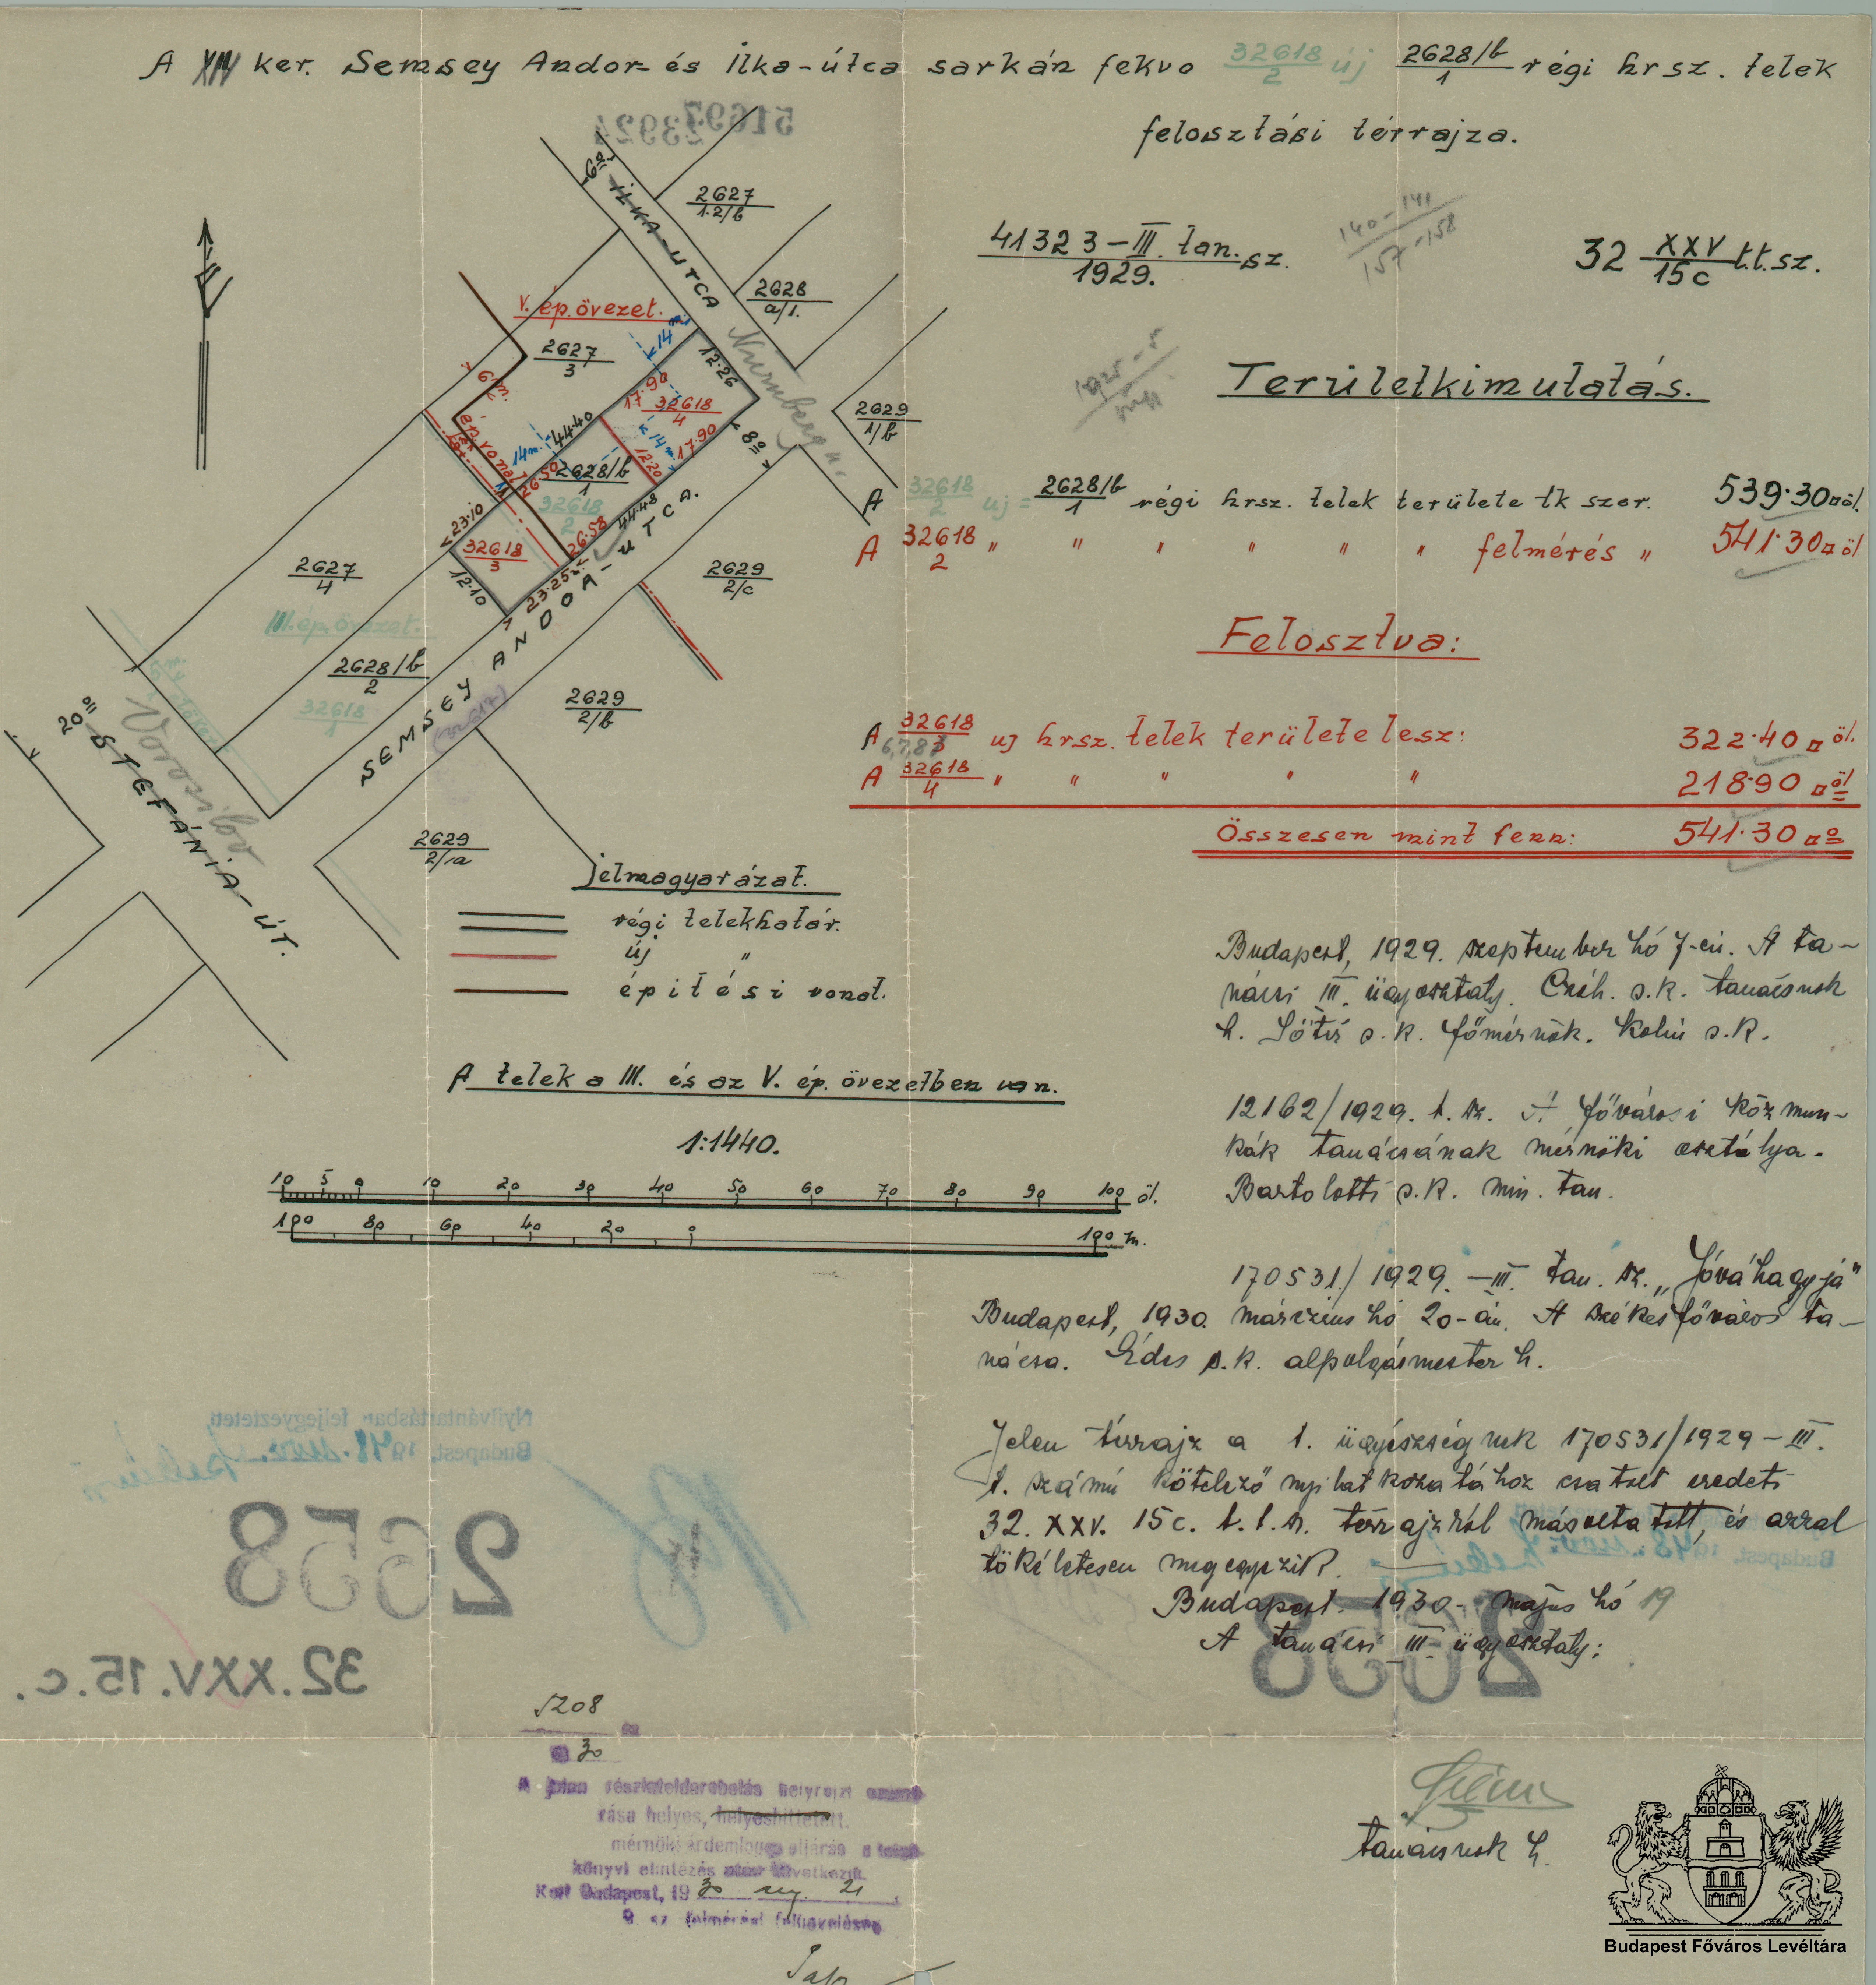 A XIV ker. Semsey Andor- és Ilka-útca sarkán fekvo 32618/2 új 2628/b/1 régi hrsz. telek
felosztási térrajza.
41323-III. tan. sz.
1929.
140-141
157-158
32 XXV/15c t.t.sz.
Területkimutatás.
A 32618/2 uj = 2628/b/1 régi hrsz. telek területe tk szer. 539·30 □öl.
A 32618/2 " " " " " " felmérés " 541·30 □ öl
Felosztva:
A 32618/3 uj hrsz. telek területe lesz: 322·40 □ öl.
6,7,8
A 32618/4 " " " " " 218·90 □ öl
Összesen mint fenn: 541·30 □ö
Budapest, 1929. szeptember hó 7-én. A ta-
nácsi III. ügyosztály. s.k. tanácsnok
h. s.k. főmérnök. s.k.
12162/1929. t. sz. A fővárosi közmun-
kák tanácsának mérnöki osztálya.
Bartolotti s.k. min. tan.
170531/1929.-III. tan. sz. „Jóváhagyja"
Budapest, 1930. március hó 20-án. A székesfőváros ta-
nácsa. s.k. alpolgármester h.
Jelen térrajz a t. ügyészségnek 170531/1929-III.
t. számú kötelező nyilatkozatához csatolt eredeti
32. XXV. 15c. t.t.sz. térrajzról másoltatott, és arral
tökéletesen megegyezik.
Budapest. 1930- május hó 19
A tanácsi III- ügyosztály:
tanácsnok h.
51697
23924
6öl
ILKA-UTCA
Nürnberg u.
2627/1·2/b
2628/a/1.
2629/1/b
V. ép. övezet.
2627/3
6 m.
ép. vonal
14 m
14 m.
14 m.
12·26
17·90
32618/4
17·90
12·20
8öl
44·40
26·50
2628/b/1
32618/2
44·48
26·58
23·10
32618/3
12·10
23·25
2627/4
III. ép. övezet.
2628/b/2
32618
2629/2/c
2629/2/b
2629/2/a
SEMSEY ANDOR-UTCA.
(32612)
20öl
STEFÁNIA-ÚT.
Vorosilov
Jelmagyarázat.
régi telekhatár.
új "
építési vonal.
A telek a III. és az V. ép. övezetben van.
1:1440.
10 5 0 10 20 30 40 50 60 70 80 90 100 öl.
100 80 60 40 20 0 100 m.
Nyilvántartásban feljegyeztetett
Budapest, 1948. nov.
2658
32.XXV.15.c.
Budapest, 1948. nov.
2658
5208
30
A jelen részletfeldarabolás helyrajzi
zása helyes, helyesbíttetett.
könyvi elintézés után következik.
Kelt Budapest, 1930 21
Budapest Főváros Levéltára